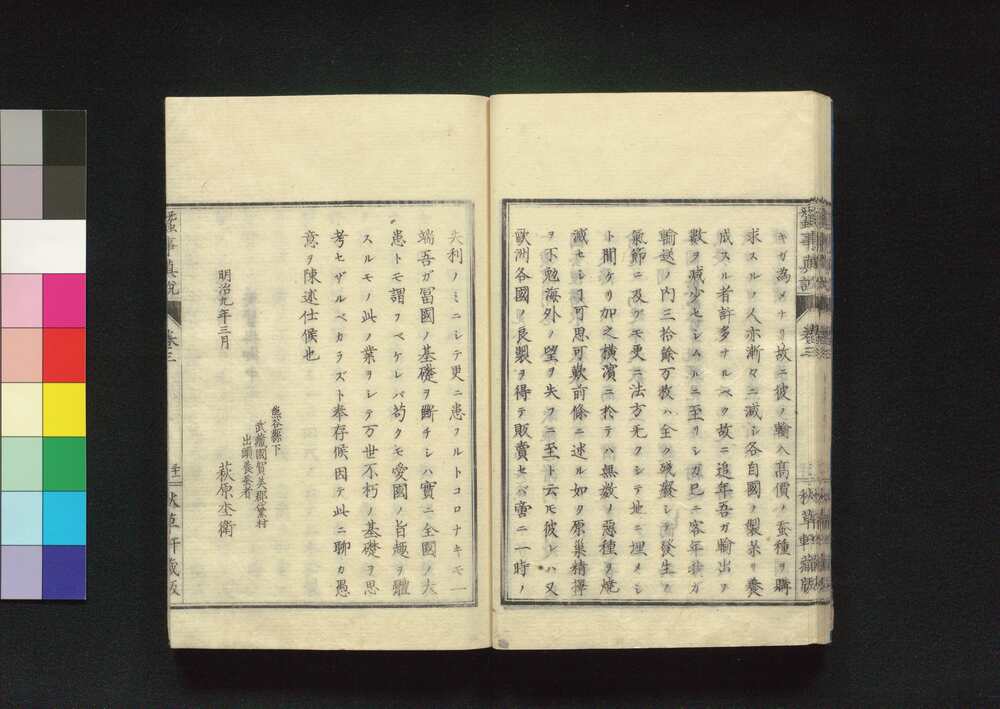 キガ為メナリ故ニ彼ノ輸入高價ノ蚕種ヲ購
求スルノ人亦漸々ニ減シ各自國ノ製茶リ養
成スル者許多ナルベク故ニ追年吾ガ輸出ヲ
數ヲ減少セシムルニ至リシガ已ニ客年我ガ
輸送ノ内三拾餘万枚ハ全ク殘礙シテ發生ノ
氣節ニ及ブモ更ニ法方无クシテ地ニ埋メシ
ト聞ケリ加之横濱ニ於テハ無数ノ惡種ヲ燒
滅セシコ可思可歎前條ニ述ル如ク原巢精擇
ヲ不勉海外ノ望ヲ失フニ至ト云モ彼レハ又
歐洲各國ノ良製ヲ得テ販賣セバ啻ニ一時ノ
蚕事真説
卷三
秋草軒藏版
失利ノミニシテ更ニ患フルトコロナキモ一
端吾ガ冨國ノ基礎ヲ斷チシハ實ニ全國ノ大
患トモ謂フベケレバ苟クモ愛國ノ旨趣ヲ體
スルモノ此ノ業ヲシテ万世不朽ノ基礎ヲ思
考セザルベカラズト奉存候因テ此ニ聊カ愚
意ヲ陳述仕候也
明治九年三月
熊谷縣下
武藏國賀美郡黛村
出頭養蚕者
萩原坴衛
蚕事真説
卷三
秋草軒藏版